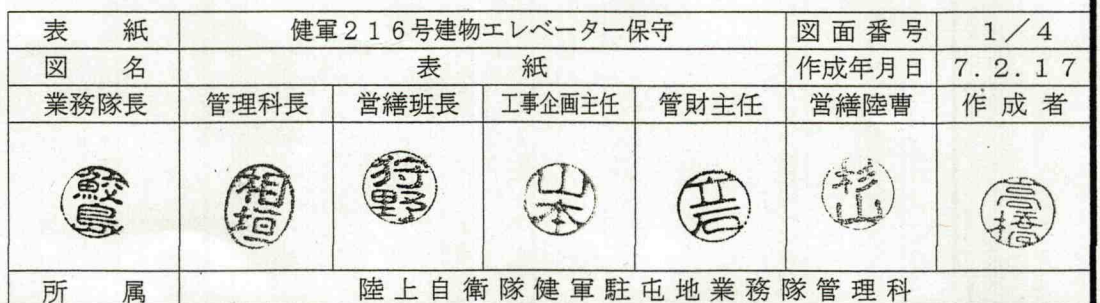 表紙 健軍216号建物エレベーター保守 図面番号 1/4
図名 表紙 作成年月日 7.2.17
業務隊長 管理科長 営繕班長 工事企画主任 管財主任 営繕陸曹 作成者
鮫島 相垣 狩野 山本 立石 杉山 高橋
所属 陸上自衛隊健軍駐屯地業務隊管理科